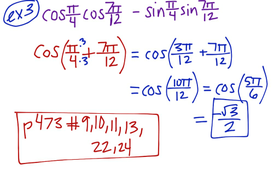 ex3) cos π/4 cos 7π/12 - sin π/4 sin 7π/12
cos(π·3/4·3 + 7π/12) = cos(3π/12 + 7π/12)
= cos(10π/12) = cos(5π/6)
= -√3/2
p473 #9,10,11,13,
22,24